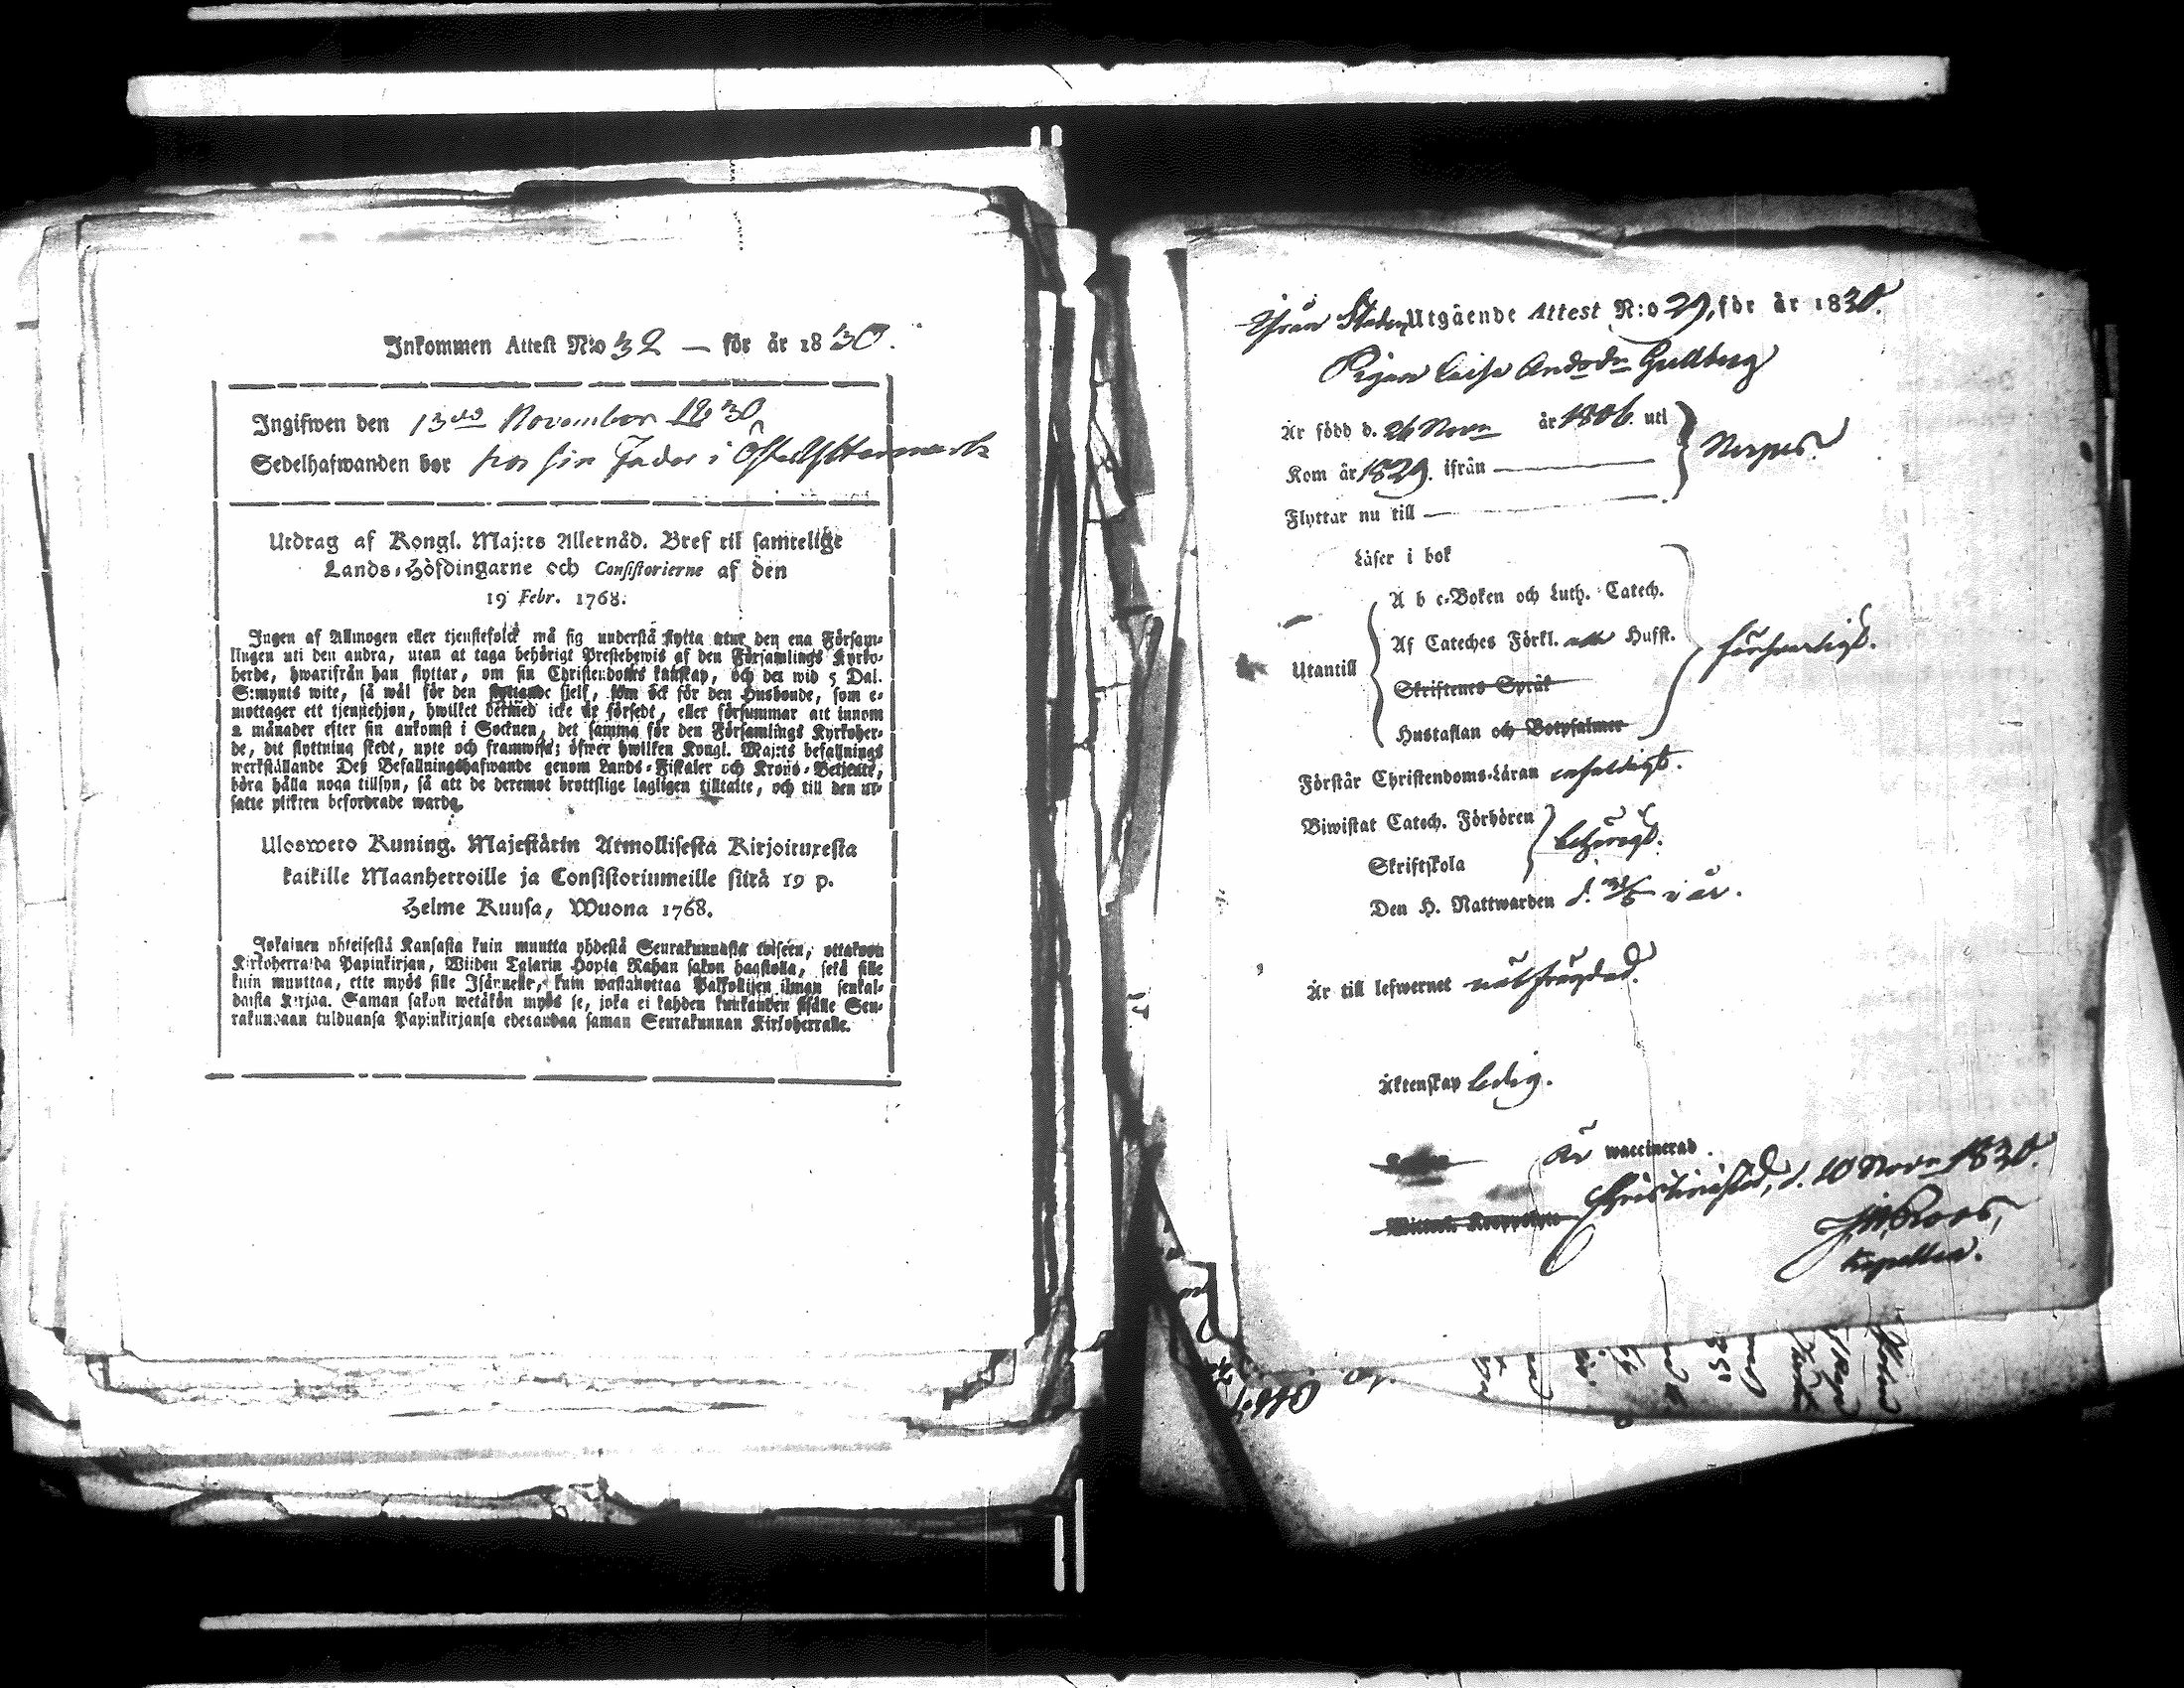 Inkommen Attest N:o 32 — för år 1830.
Ingifwen den 13de November 1830
Sedelhafwanden bor hos sin Fader i Öfwer Yttermark
Utdrag af Kongl. Maj:ts Allernåd. Bref til samtelige
Lands-Höfdingarne och Consistorierne af den
19 Febr. 1768.
Ingen af Allmogen eller tjenstefolck må sig understå flytta utur den ena Försam-
lingen uti den andra, utan at taga behörigt Prestebewis af den Församlings Kyrko-
herde, hwarifrån han flyttar, om sin Christendoms kunskap, och det wid 5 Dal.
S:mynts wite, så wäl för den flyttande sjelf, som ock för den Husbonde, som e-
mottager ett tjenstehjon, hwilket dermed icke är försedt, eller försummar att innom
2 månader efter sin ankomst i Socknen, det samma för den Församlings Kyrkoher-
de, dit flyttning skedt, upte och framwisa; öfwer hwilken Kongl. Maj:ts befallnings
werkställande Des Befallningshafwande genom Lands-Fiskaler och Krono-Betjente,
böra hålla noga tillsyn, så att de deremot brottslige lagligen tilltalte, och till den ut-
satte plikten befordrade warda.
Ulosweto Kuning. Majestätin Armollisesta Kirjoituxesta
kaikille Maanherroille ja Consistoriumeille siitä 19 p.
Helme Kuusa, Wuona 1768.
Jokainen yhteisestä Kansasta kuin muutta yhdestä Seurakunnasta toiseen, ottakoon
Kirkoherralda Papinkirjan, Wiiden Talarin Hopia Rahan sakon haastolla, sekä sille
kuin muuttaa, ette myös sille Isännelle, kuin wastanottaa Palkollisen ilman senkal-
daista Kirjaa. Saman sakon wetäkön myös se, joka ei kahden kuukauden sisälle Seu-
rakundaan tulduansa Papinkirjansa edesandaa saman Seurakunnan Kirkoherralle.
Ifrån Staden Utgående Attest N:o 29, för år 1830.
Pigan Caisa Andsdr Gullberg
Är född d. 26 Novr år 1806. uti
Närpes.
Kom år 1829. ifrån
Flyttar nu till
Läser i bok
A b c-Boken och Luth. Catech.
Af Cateches Förkl. Hufst.
Utantill
försvarligt.
Skriftenes Språk
Hustaflan och Botpsalmer
Förstår Christendoms-Läran enfaldigt.
Biwistat Catech. Förhören
behörigt.
Skriftskola
Den H. Nattwarden i år.
Är till lefwernet
Äktenskap ledig.
Är waccinerad.
Christinestad, d. 10 Novr 1830.
Roos,
Kapellan.